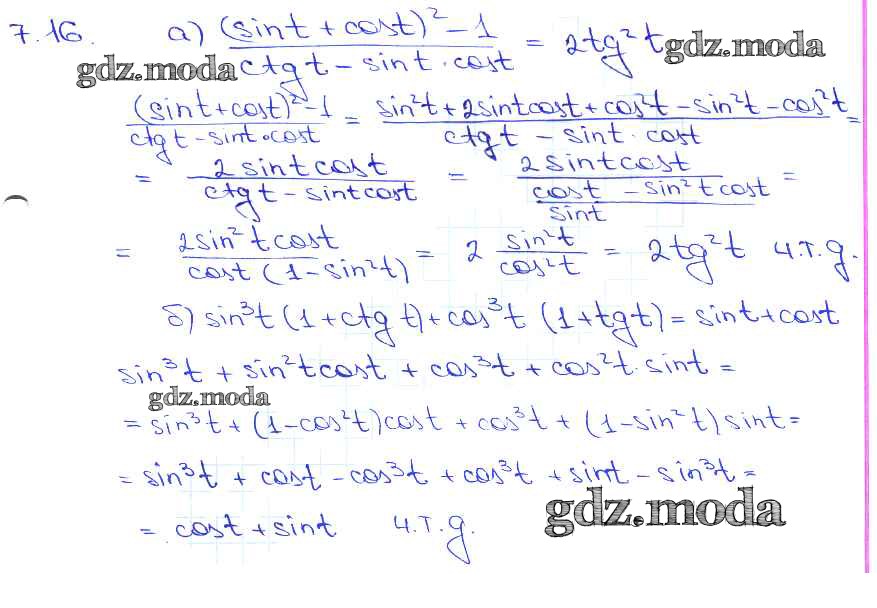 7.16. а) (sint + cost)² - 1 / ctg t - sin t · cost = 2tg² t gdz.moda
gdz.moda
(sint+cost)²-1 / ctg t - sint·cost = sin²t + 2sintcost + cos²t - sin²t - cos²t / ctg t - sin t · cost =
= 2 sintcost / ctg t - sintcost = 2 sintcost / cost - sin² t cost / sint =
= 2sin² t cost / cost (1 - sin²t) = 2 sin²t / cos²t = 2tg²t ч.т.д.
б) sin³t (1+ctg t) + cos³t (1+tgt) = sint+cost
sin³t + sin²tcost + cos³t + cos²t · sint =
gdz.moda
= sin³t + (1-cos²t)cost + cos³t + (1-sin²t) sint =
= sin³t + cost - cos³t + cos³t + sint - sin³t =
= cost + sint ч.т.д. gdz.moda